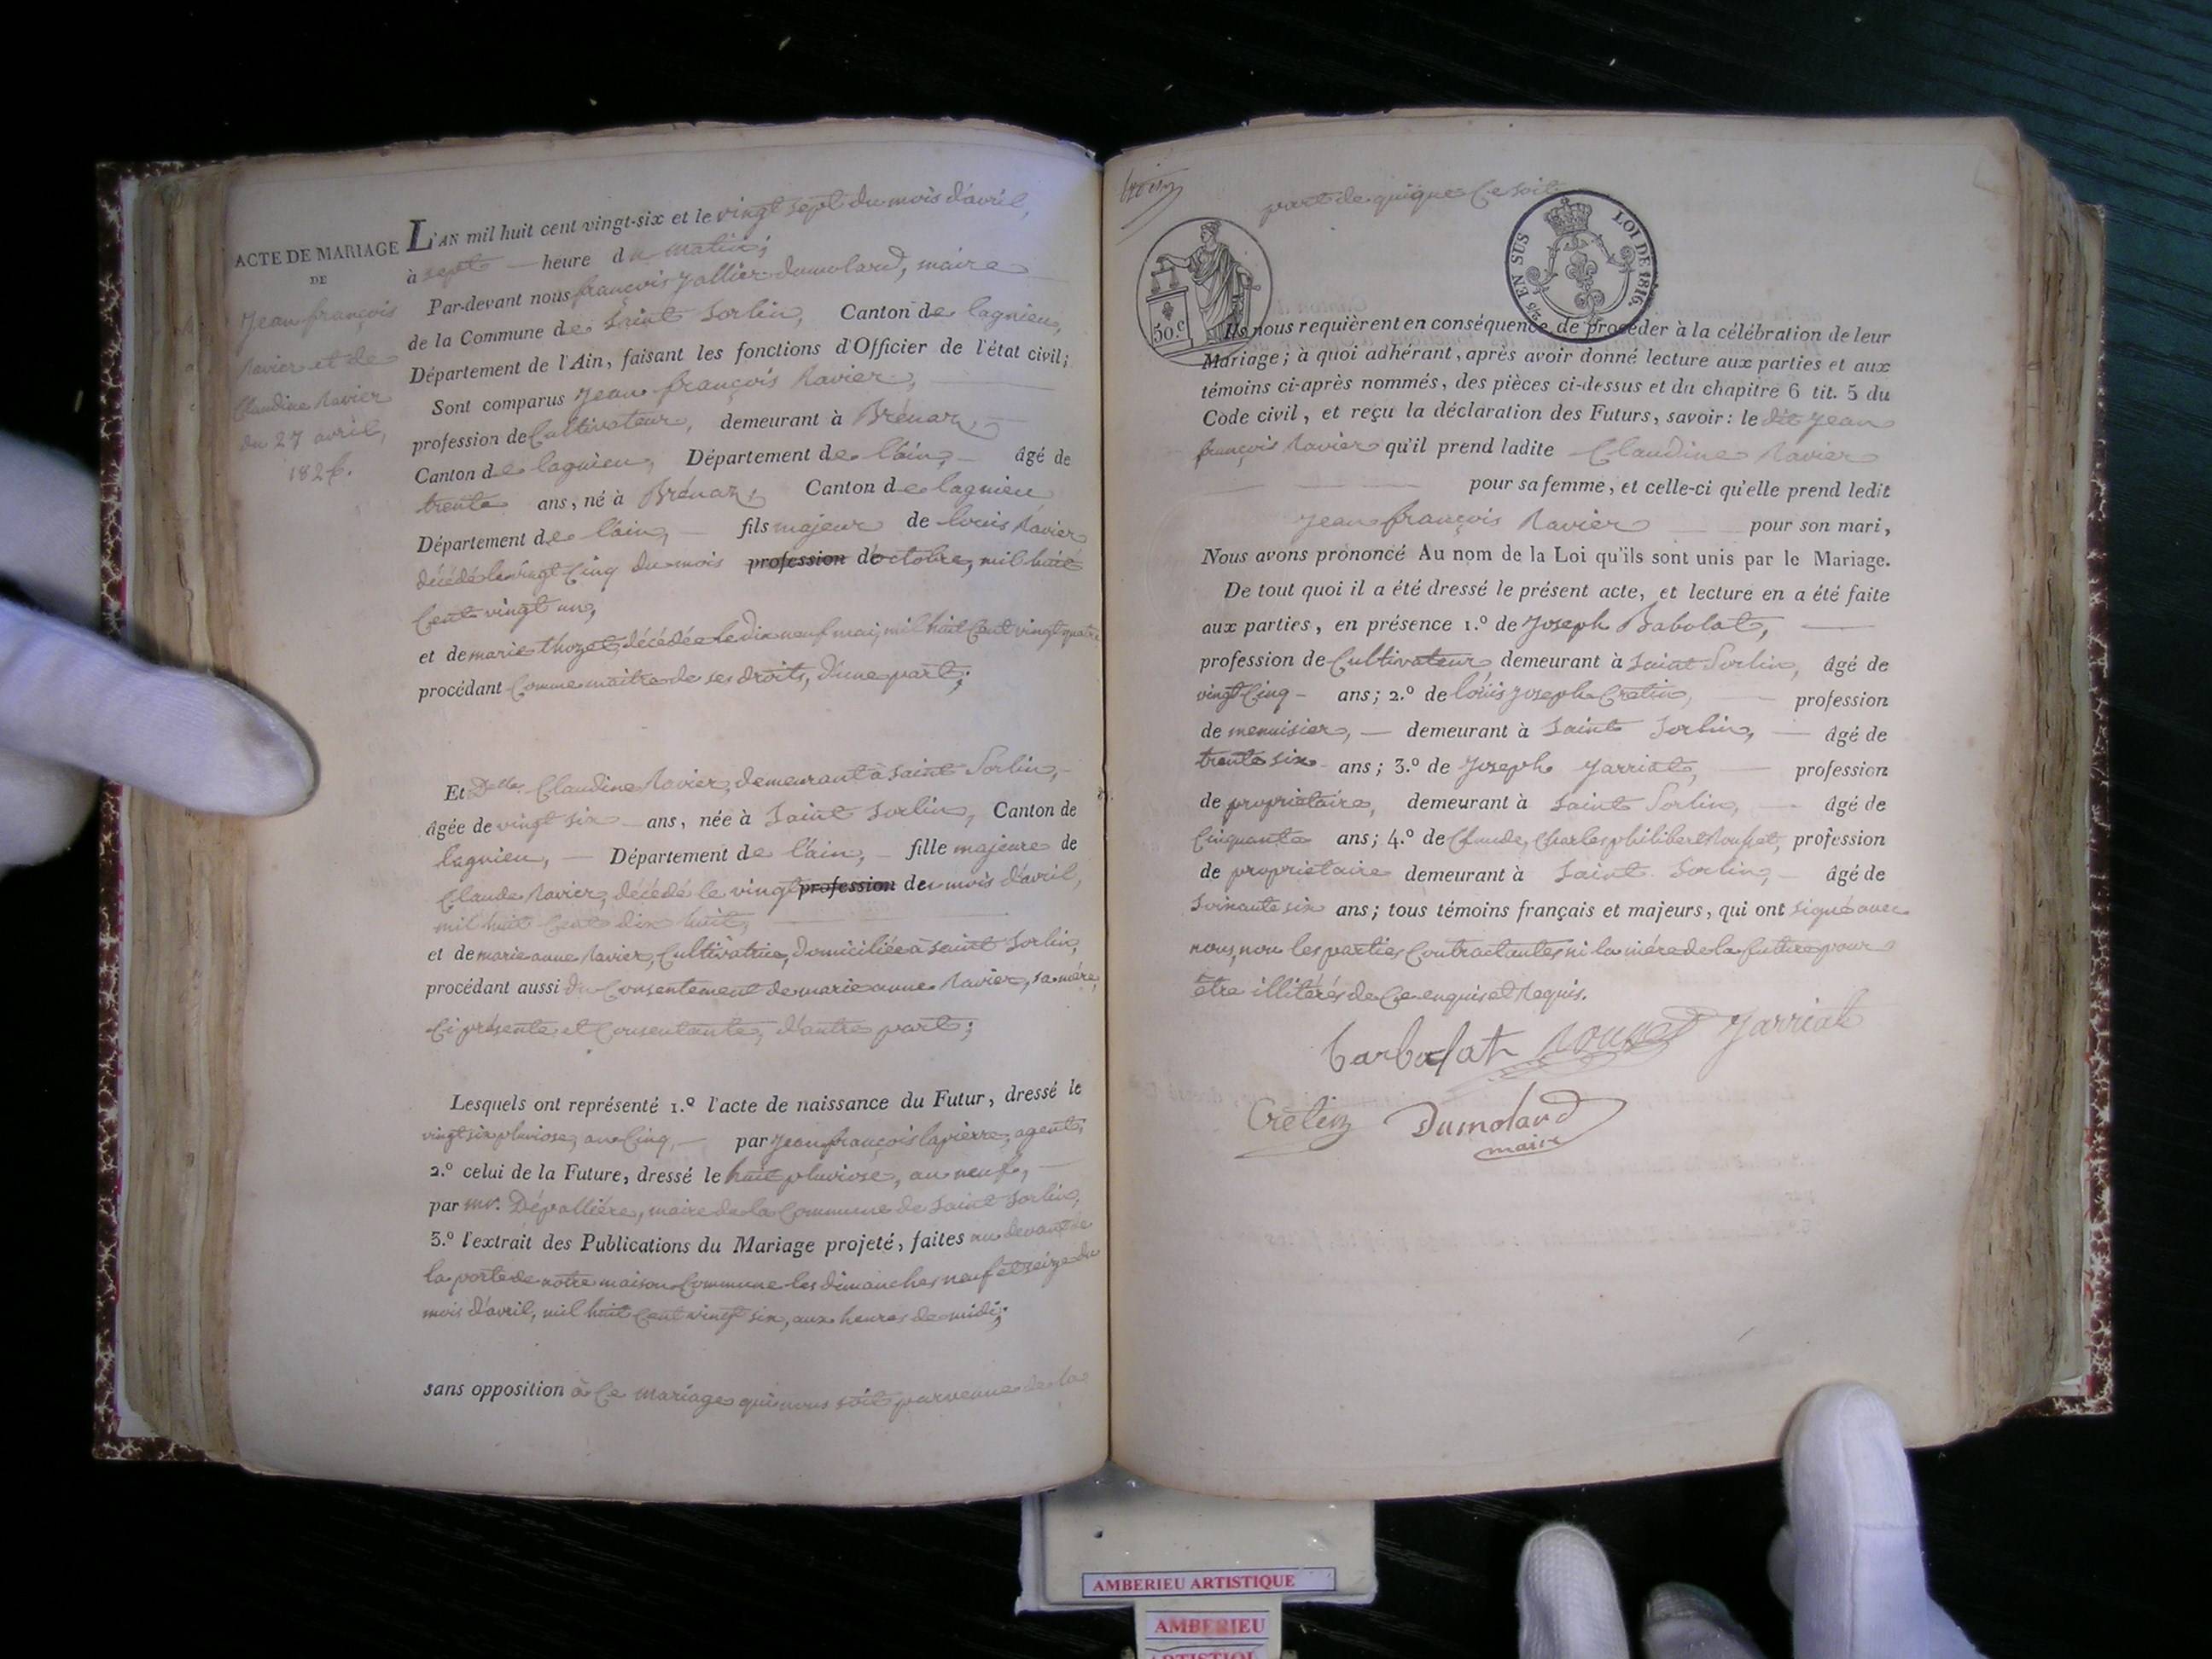 ACTE DE MARIAGE
DE
Jean françois
Ravier et de
Claudine Ravier
du 27 avril,
1826.
L'AN mil huit cent vingt-six et le vingt sept du mois d'avril,
à sept heure du matin;
Par-devant nous françois Jallier-dumolard, maire
de la Commune de Saint Sorlin, Canton de lagnieu,
Département de l'Ain, faisant les fonctions d'Officier de l'état civil;
Sont comparus Jean françois Ravier,
profession de Cultivateur, demeurant à Brénaz,
Canton de lagnieu, Département de l'ain, âgé de
trente ans, né à Brénaz, Canton de lagnieu
Département de l'ain, fils majeur de louis Ravier
décédé le vingt cinq du mois profession d'octobre, mil huit
Cent vingt un,
et de marie thozet, décédée le dix neuf mai, mil huit Cent vingt quatre
procédant Comme maitre de ses droits, d'une part;
Et Delle. Claudine Ravier, demeurant à Saint Sorlin,
âgée de vingt six ans, née à Saint Sorlin, Canton de
lagnieu, Département de l'ain, fille majeure de
Claude Ravier, décédé le vingt profession du mois d'avril,
mil huit Cent dix huit,
et de marie anne Ravier, Cultivatrice, domiciliée à saint Sorlin,
procédant aussi du Consentement de marie anne Ravier, sa mére,
Ci présente et Consentante, d'autre part;
Lesquels ont représenté 1.º l'acte de naissance du Futur, dressé le
vingt six pluviose, an Cinq, par Jean françois lapierre, agent,
2.º celui de la Future, dressé le huit pluviose, an neuf,
par mr. Dépalliére, maire de la Commune de Saint Sorlin,
3.º l'extrait des Publications du Mariage projeté, faites au devant de
la porte de notre maison Commune les dimanches neuf et seize du
mois d'avril, mil huit Cent vingt six, aux heures de midi;
sans opposition à Ce mariage qui nous soit parvenue de la
part de quique Ce soit
50.c
EN SUS
LOI DE 1816.
Ils nous requièrent en conséquence de procéder à la célébration de leur
Mariage; à quoi adhérant, après avoir donné lecture aux parties et aux
témoins ci-après nommés, des pièces ci-dessus et du chapitre 6 tit. 5 du
Code civil, et reçu la déclaration des Futurs, savoir: le dit Jean
françois Ravier qu'il prend ladite Claudine Ravier
pour sa femme, et celle-ci qu'elle prend ledit
Jean françois Ravier pour son mari,
Nous avons prononcé Au nom de la Loi qu'ils sont unis par le Mariage.
De tout quoi il a été dressé le présent acte, et lecture en a été faite
aux parties, en présence 1.º de Joseph Babolat,
profession de Cultivateur demeurant à Saint Sorlin, âgé de
vingt Cinq ans; 2.º de loüis Joseph Cretin, profession
de menuisier, demeurant à Saint Sorlin, âgé de
trente six ans; 3.º de Joseph Jarriat, profession
de propriétaire, demeurant à Saint Sorlin, âgé de
Cinquante ans; 4.º de Claude, Charles philibert Rousset, profession
de propriétaire demeurant à Saint Sorlin, âgé de
soixante six ans; tous témoins français et majeurs, qui ont signé avec
nous, non les parties Contractantes ni la mére de la future pour
être illitérés de Ce enquis et Requis.
barbolat Rousset Jarriat
Cretin Dumolard
maire
AMBERIEU ARTISTIQUE
AMBERIEU
ARTISTIQUE